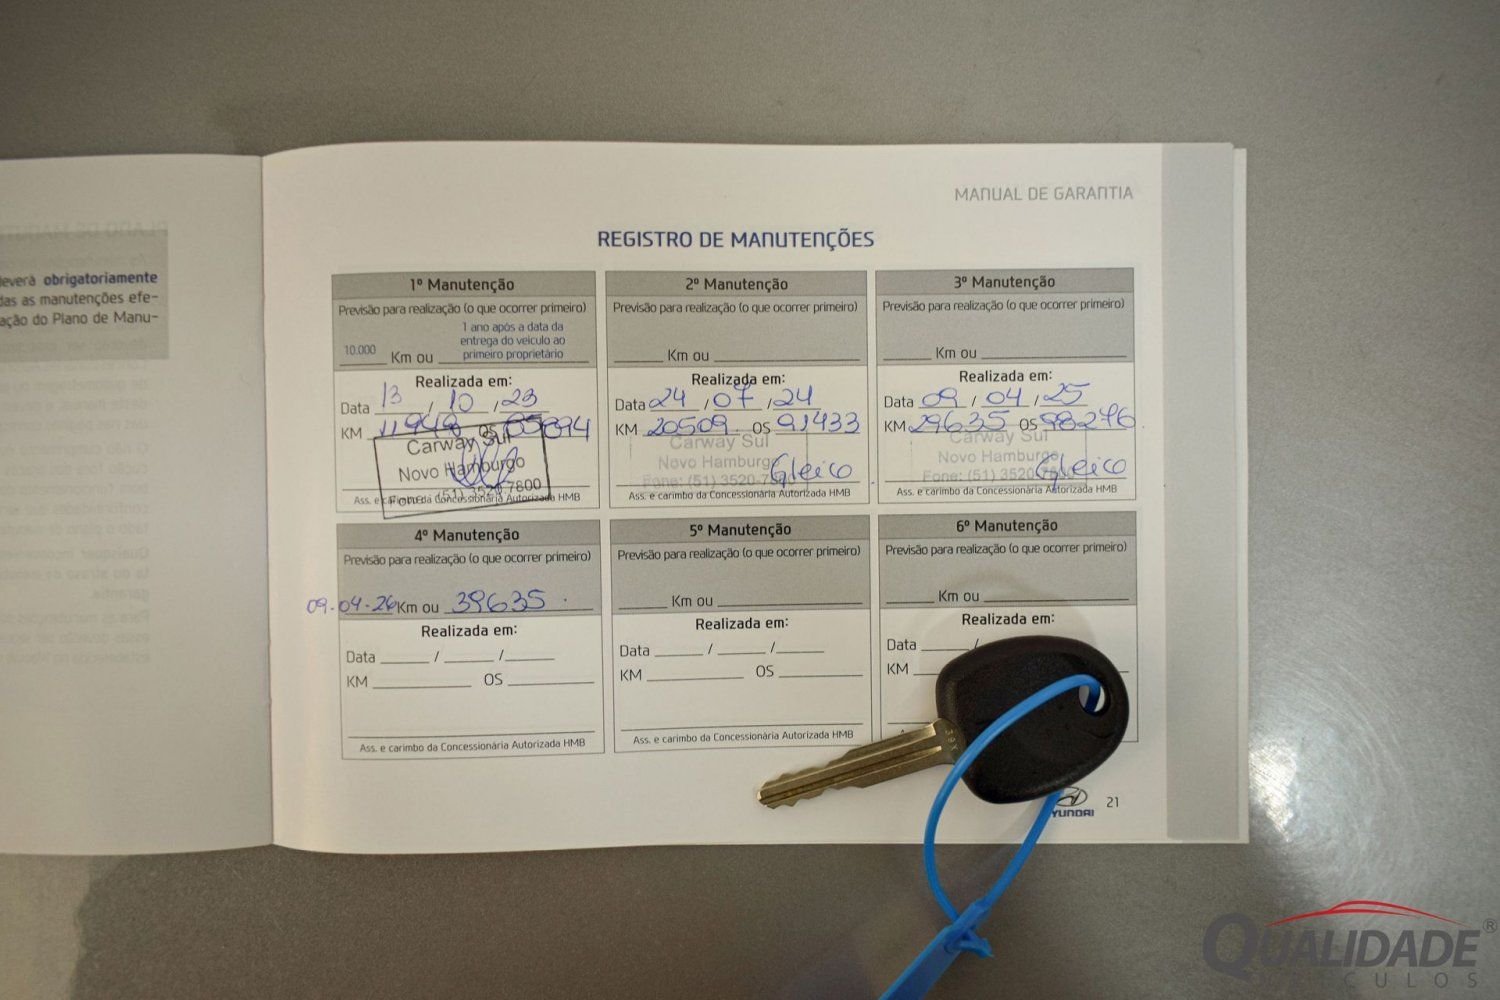 MANUAL DE GARANTIA
REGISTRO DE MANUTENÇÕES
everá obrigatoriamente
das as manutenções efe-
ação do Plano de Manu-
1º Manutenção
Previsão para realização (o que ocorrer primeiro)
10.000 Km ou 1 ano após a data da
entrega do veículo ao
primeiro proprietário
Realizada em:
Data 13 / 10 / 23
KM 11949 OS
Carway Sul
Novo Hamburgo
Fone: (51) 3520-7800
Ass. e carimbo da Concessionária Autorizada HMB
2º Manutenção
Previsão para realização (o que ocorrer primeiro)
Km ou
Realizada em:
Data 24 / 07 / 24
KM 20509 OS 91433
Carway Sul
Novo Hamburgo
Gleico
Fone: (51) 3520-7800
Ass. e carimbo da Concessionária Autorizada HMB
3º Manutenção
Previsão para realização (o que ocorrer primeiro)
Km ou
Realizada em:
Data 09 / 04 / 25
KM 29635 OS 98276
Carway Sul
Novo Hamburgo
Gleico
Fone: (51) 3520-7800
Ass. e carimbo da Concessionária Autorizada HMB
4º Manutenção
Previsão para realização (o que ocorrer primeiro)
09-04-26 Km ou 39635
Realizada em:
Data / /
KM OS
Ass. e carimbo da Concessionária Autorizada HMB
5º Manutenção
Previsão para realização (o que ocorrer primeiro)
Km ou
Realizada em:
Data / /
KM OS
Ass. e carimbo da Concessionária Autorizada HMB
6º Manutenção
Previsão para realização (o que ocorrer primeiro)
Km ou
Realizada em:
Data /
KM
YUNDAI 21
QUALIDADE®